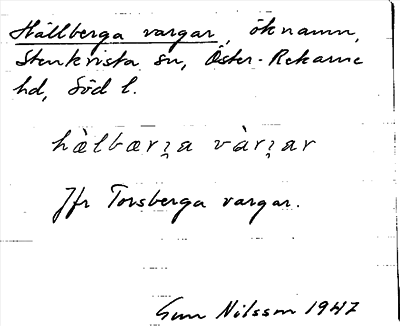 Hällberga vargar, öknamn,
Stenkvista sn, Öster-Rekarne
hd, Söd l.
hàlbærı̣a vàrı̣ar
Jfr Torsberga vargar.
Gun Nilsson 1947